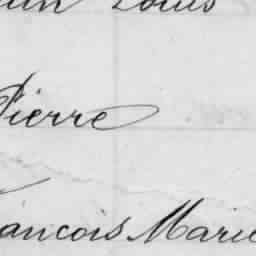 Louis
Pierre
Francois Marie